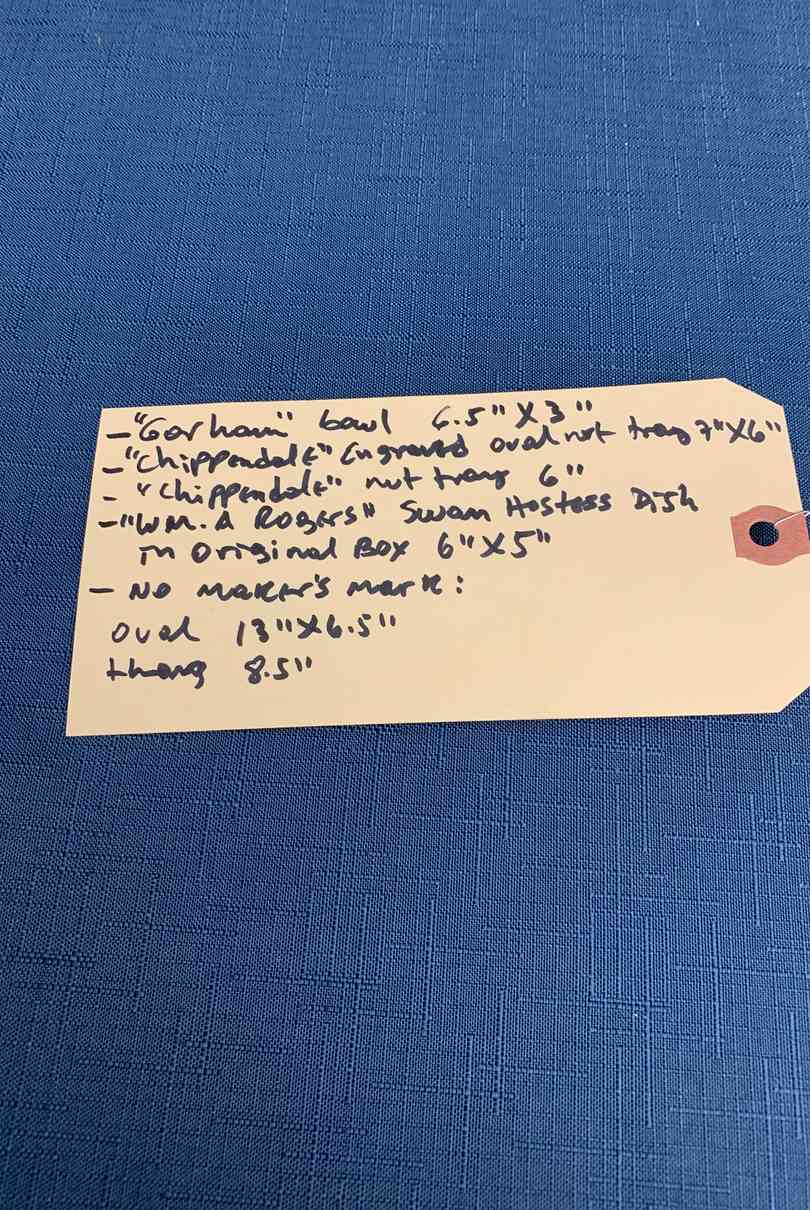 - "Gorham" bowl 6.5" X 3"
- "Chippendale" Engraved oval nut tray 7" X 6"
- "Chippendale" nut tray 6"
- "WM. A ROGERS" Swan Hostess Dish
in original Box 6" X 5"
- No maker's mark:
oval 13" X 6.5"
8.5"